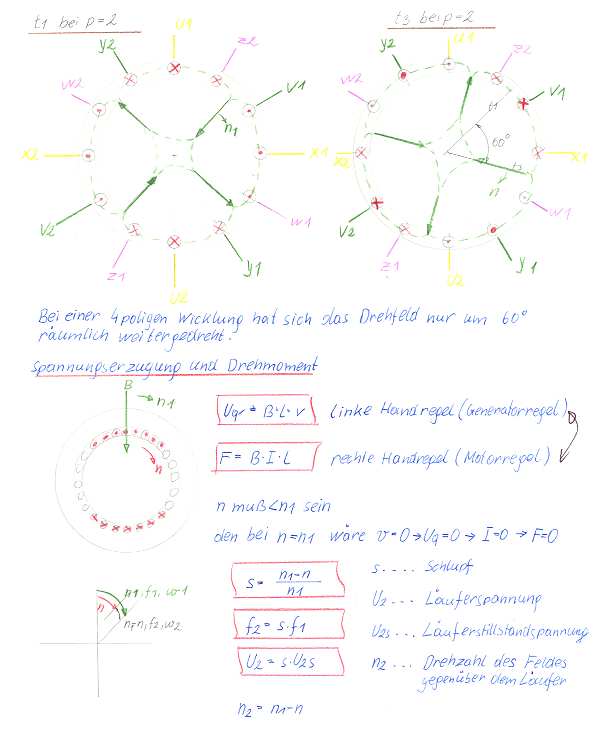 t1 bei p=2
t3 bei p=2
U1
y2
z2
w2
V1
n1
X2
X1
V2
w1
z1
y1
U2
U1
y2
z2
w2
V1
t1
60°
X2
X1
t2
n
V2
w1
z1
y1
U2
Bei einer 4poligen Wicklung hat sich das Drehfeld nur um 60°
räumlich weitergedreht.
Spannungserzugung und Drehmoment
B
n1
n
Uq = B·L·v linke Handregel (Generatorregel)
F = B·I·L rechte Handregel (Motorregel)
n muß < n1 sein
den bei n=n1 wäre v=0 → Uq=0 → I=0 → F=0
s = n1-n / n1
s.... Schlupf
f2 = s·f1
U2... Läuferspannung
U2 = s·U2s
U2s... Läuferstillstandspannung
n2... Drehzahl des Feldes
gegenüber dem Läufer
n2 = n1-n
n1, f1, w1
n
f2, w2